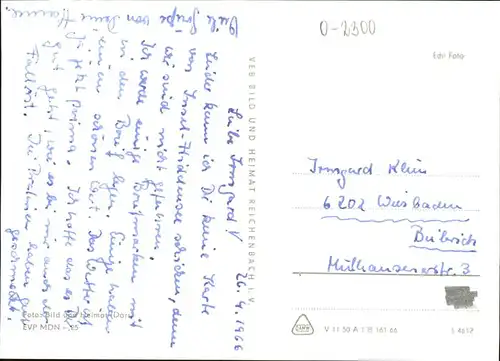 0-2300
Edit Foto
Liebe Irmgard! 26.4.1966
Leider kann ich Dir keine Karte
von Insel-Hiddensee schicken, denn
wir sind nicht gefahren.
Ich werde einige Briefmarken mit
in den Brief legen. Einige haben
einen schönen Das Wetter ist
ja jetzt prima. Ich hoffe das es Dir
gut geht, wie es bei mir auch der
Fall ist. Die Pralinen haben gut
geschmeckt.
Viele Grüße von Deine
VEB BILD UND HEIMAT REICHENBACH I. V.
Irmgard
6202 Wiesbaden
Biebrich
Mülhausenerstr. 3
Foto: Bild und Heimat
EVP MDN -,25
V 11 50 A 1/B 161 66